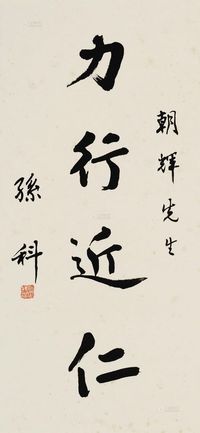 朝輝先生
力行近仁
孫科